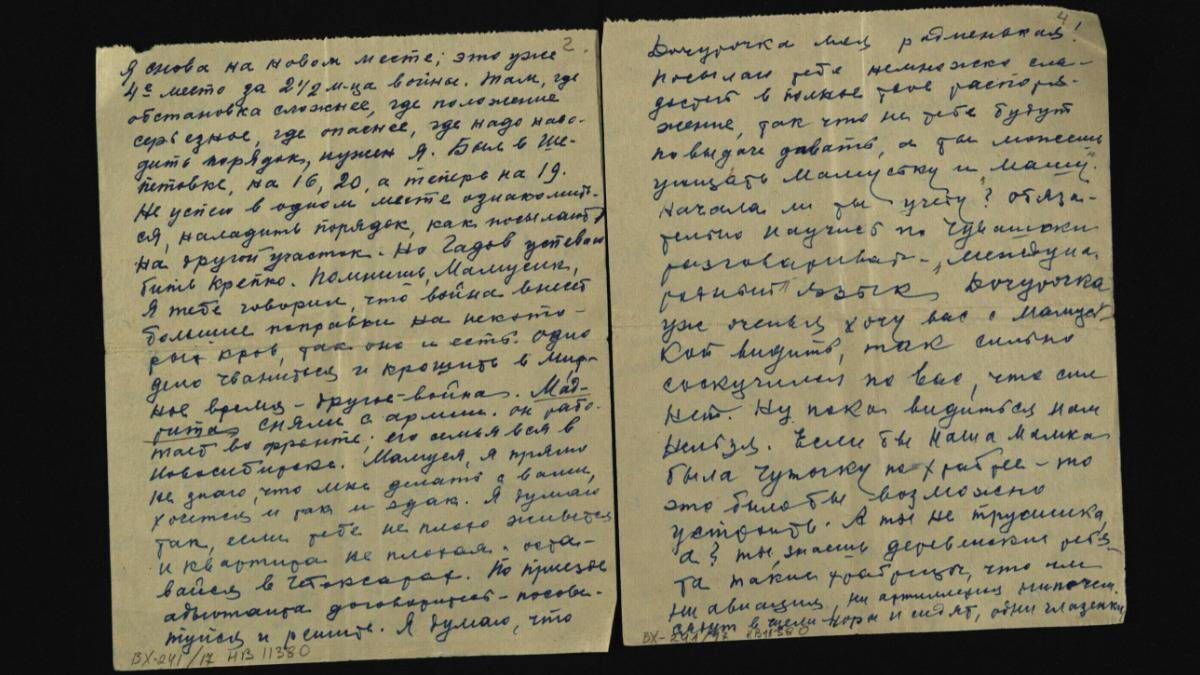 2.
Я снова на новом месте; это уже
4е место за 2 1/2 м-ца войны. Там, где
обстановка сложнее, где положение
серьезное, где опаснее, где надо наво-
дить порядок, нужен я. Был в Ше-
петовке, на 16, 20, а теперь на 19.
Не успел в одном месте ознакомить-
ся, наладить порядок, как посылают
на другой участок. Но Гадов успеваю
бить крепко. Помнишь, Мамусик,
Я тебе говорил, что война внесет
большие поправки на некото-
рых, так оно и есть. Одно
дело чваниться и крошить в мир-
ное время – другое – война.
сняли с армии. он рабо-
тает во фронте; его семья вся в
Новосибирске. Мамуся, я прямо
не знаю что мне делать с вами,
хочется и так и эдак. Я думаю
так, если тебе не плохо живется
и квартира не плохая – оста-
вайся в Чебоксарах. По приезде
адъютанта договоритесь – посове-
туйся и решите. Я думаю, что
ВХ-241/17 НВ 11380
4
Дочурочка моя родненькая!
Посылаю тебе немножко сла-
достей в полное твое распоря-
жение, так что не тебе будут
по выдаче давать, а ты можешь
угощать Мамустку и „Машу".
Начала ли ты учебу? Обяза-
тельно научись по Чувашски
разговаривать – „международный" язык. Дочурочка
уж очень я хочу вас с Мамуст-
кой видеть, так сильно
соскучился по вас, что сил
нет. Ну пока видиться нам
нельзя. Если бы Наша Мамка
была чуточку по храбрее – то
это было бы возможно
устроить. А ты не трусишка,
а? ты, знаешь деревенские ребя-
та такие храбрецы, что им
ни авиация, ни артиллерия нипочем.
в щели норы и сидят, одни глазенки
ВХ-241/17 НВ 11380